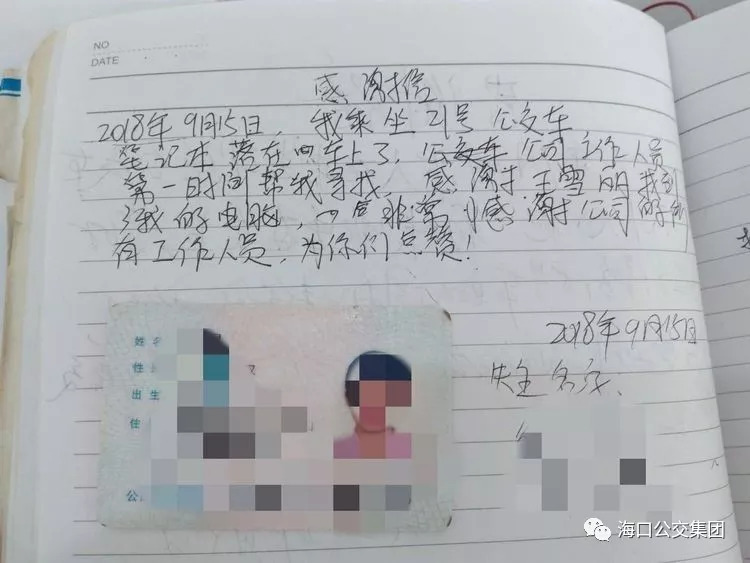 NO
DATE
感谢信
2018年9月15日，我乘坐21号公交车
笔记本落在车上了，公交车公司工作人员
第一时间帮我寻找，感谢王雪丽找到
了我的电脑，非常感谢公司的所
有工作人员，为你们点赞！
2018年9月15日
失主名字：
姓名
性
出生
住
公
海口公交集团